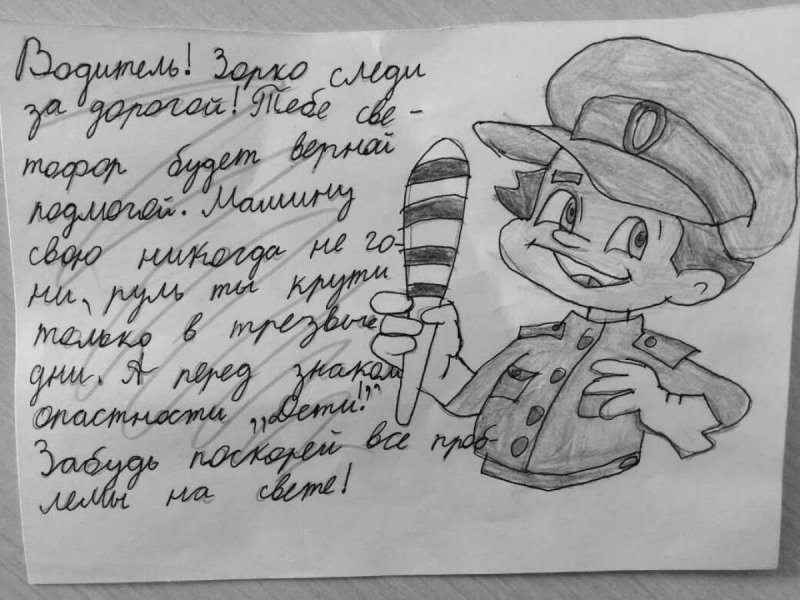 Водитель! Зорко следи
за дорогой! Тебе све-
тофор будет верной
подмогой. Машину
свою никогда не го-
ни, руль ты крути
только в трезвые
дни. А перед знаком
опастности „Дети!"
Забудь поскорей все проб-
лемы на свете!